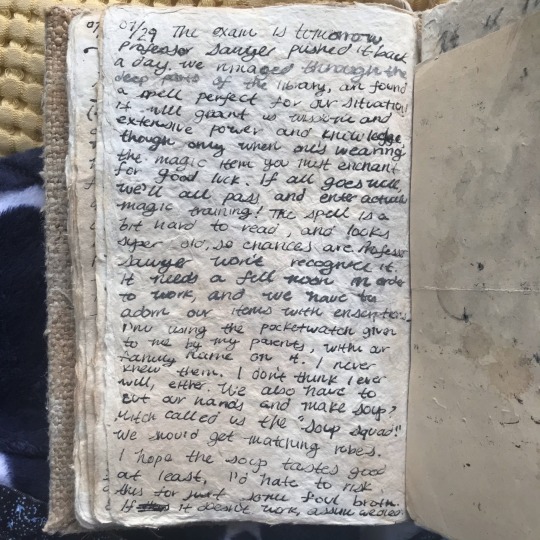 07/29 The exam is tomorrow
Professor Sawyer pushed it back
a day, we managed through the
deep parts of the library, an found
a spell perfect for our situation!
it will grant us wisdom and
extensive power and knowledge
though only when one's wearing
the magic item you must enchant
for good luck. If all goes well,
we'll all pass and enter actual
magic training! The spell is a
bit hard to read, and looks
super old, so chances are Professor
Sawyer won't recognize it.
It needs a full moon in order
to work, and we have to
adorn our items with
I'm using the pocketwatch given
to me by my parents, with our
family name on it. I never
knew them. I don't think I ever
will, either. We also have to
cut our hands and make soup?
Mitch called us the "soup squad!"
We should get matching robes.
I hope the soup tastes good
at least, I'd hate to risk
this for just some foul broth.
If it doesn't work, assume we died